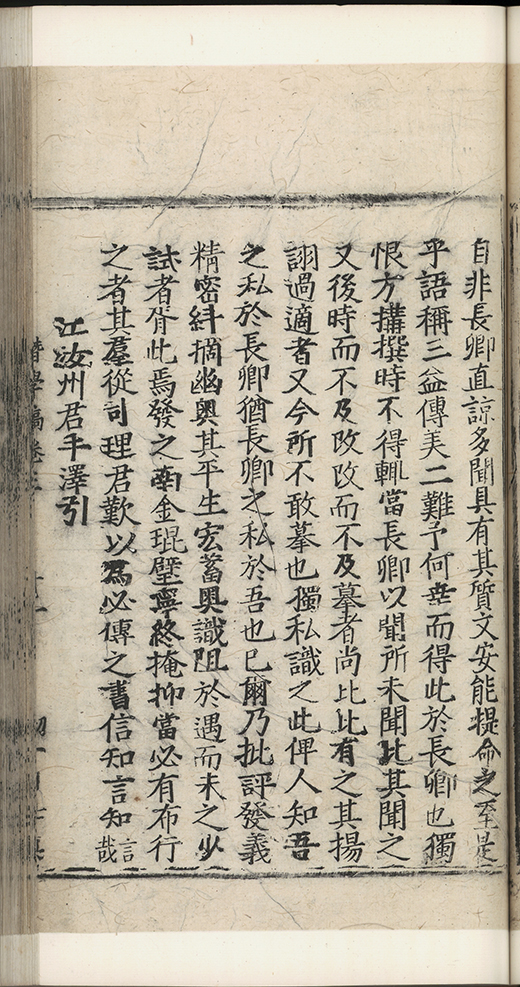 自非長卿直諒多聞具有其質文安能提命之至是
乎語稱三益傳美二難予何幸而得此於長卿也獨
恨方搆撰時不得輒當長卿以聞所未聞比其聞之
又後時而不及改改而不及摹者尚比比有之其揚
詡過適者又今所不敢摹也獨私識之此俾人知吾
之私於長卿猶長卿之私於吾也已爾乃批評發義
精密紏摘幽奧其平生宏蓄奧識阻於遇而未之少
試者胥此焉發之南金琨璧寧終掩抑當必有布行
之者其羣從司理君歎以爲必傳之書信知言知言哉
江汝州君手澤引